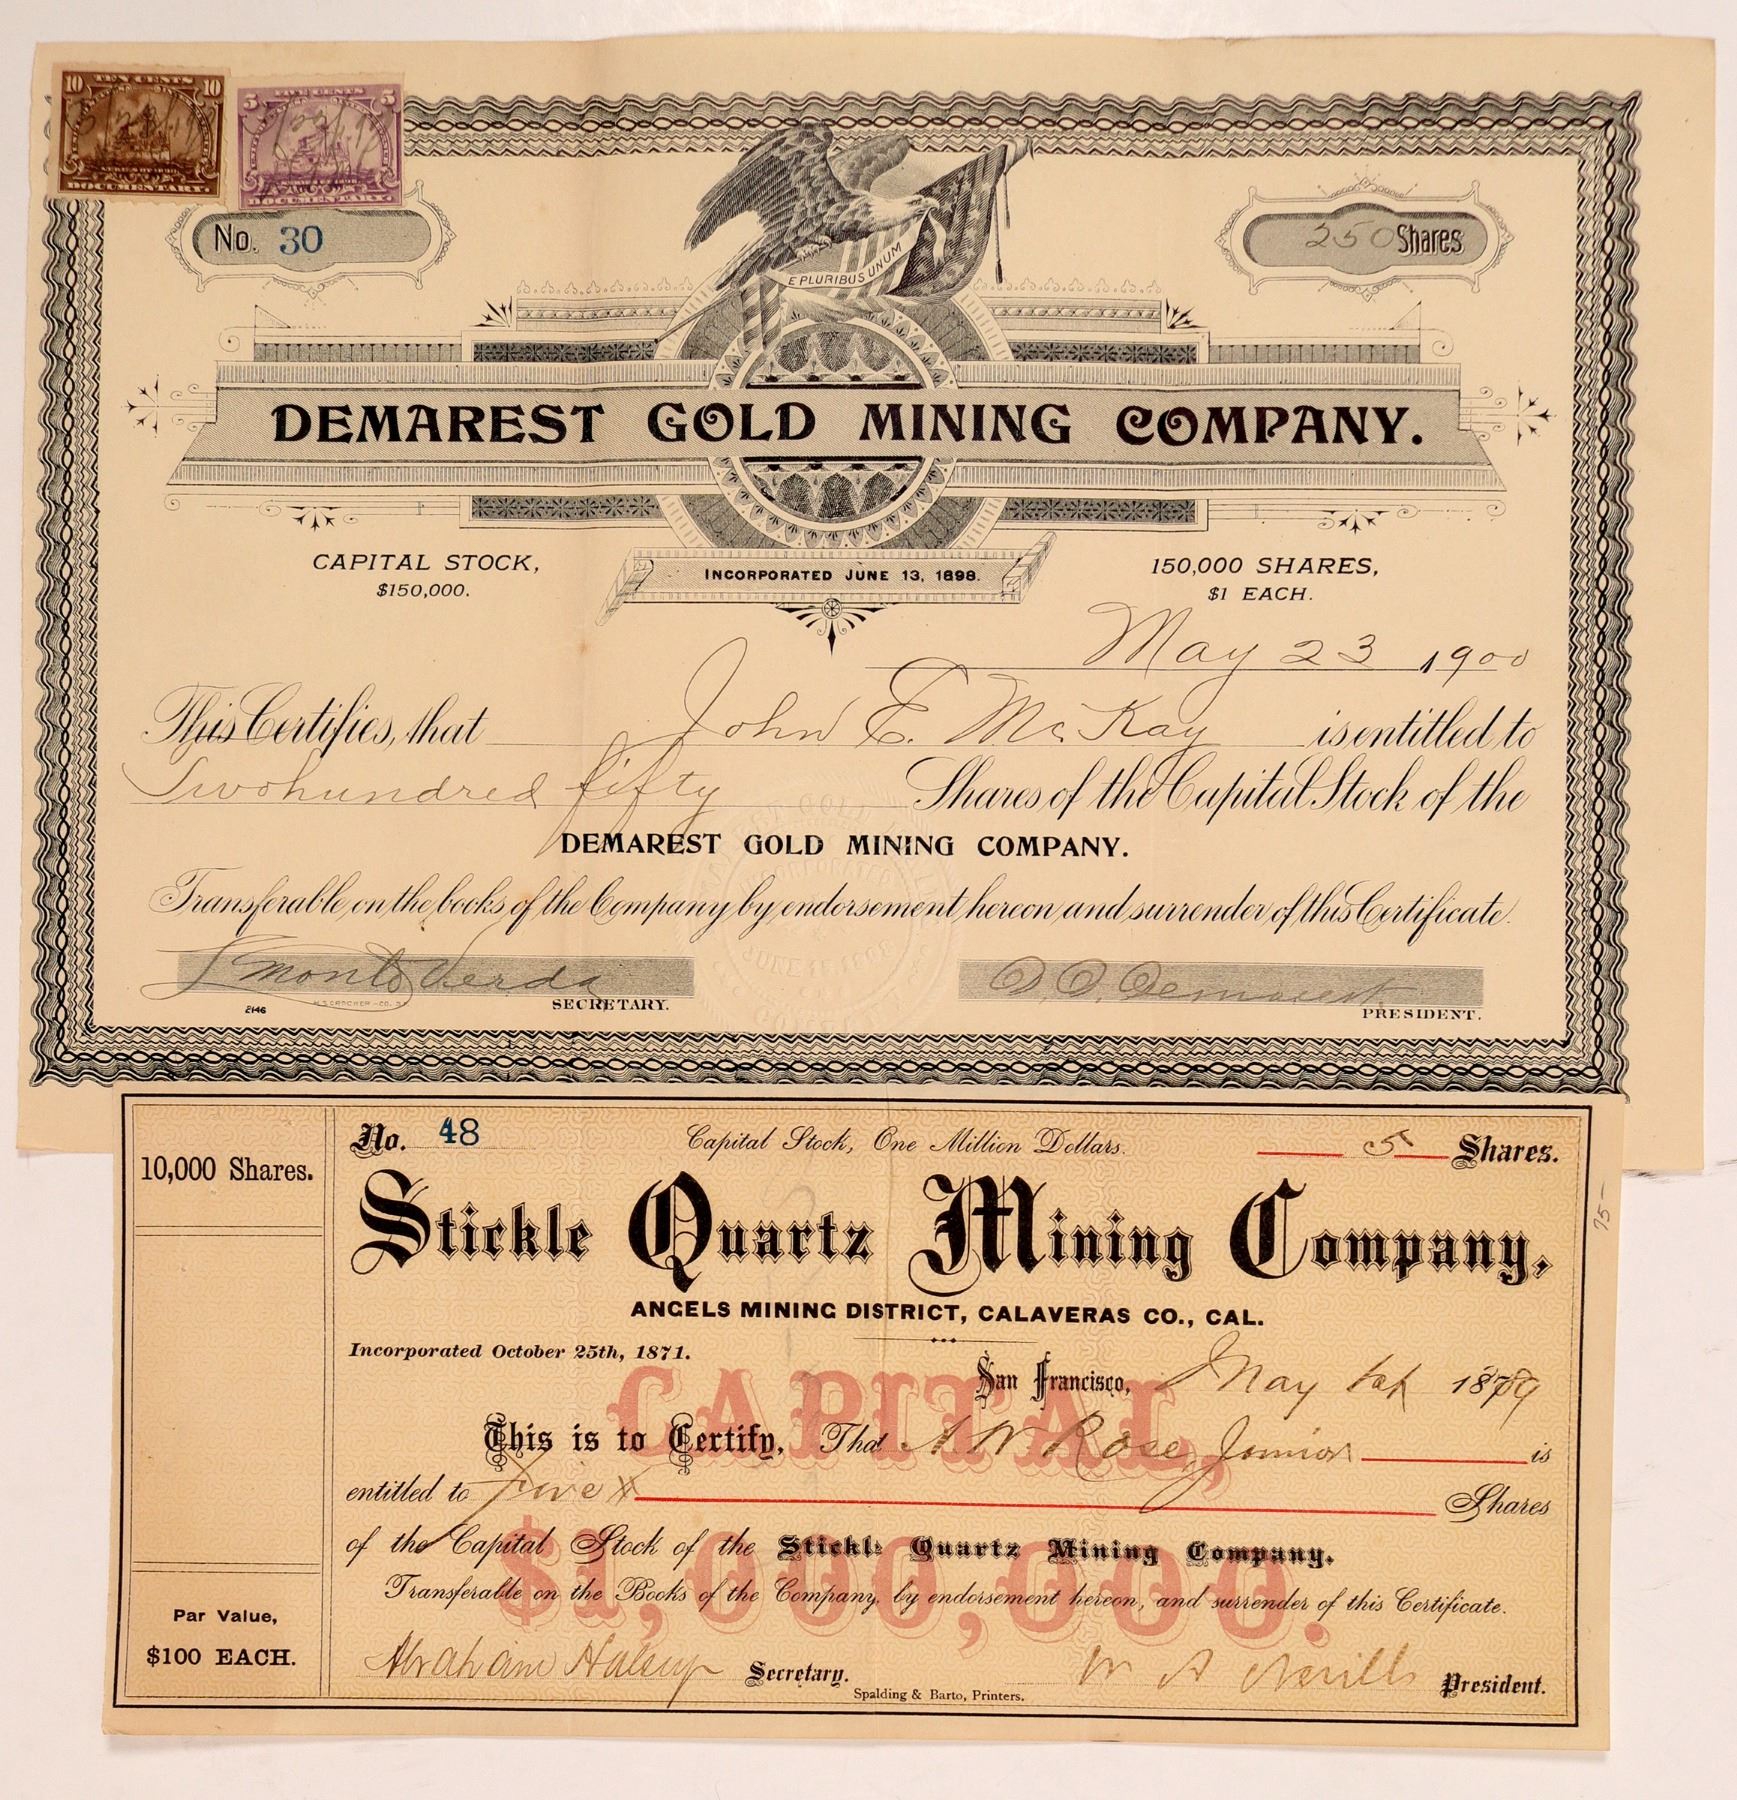 10 TEN CENTS 10
DOCUMENTARY.
5 FIVE CENTS 5
DOCUMENTARY.
No. 30
250 Shares
E PLURIBUS UNUM
DEMAREST GOLD MINING COMPANY.
CAPITAL STOCK,
$150,000.
INCORPORATED JUNE 13, 1898.
150,000 SHARES,
$1 EACH.
May 23 1900
This Certifies, that John E. McKay is entitled to
Two hundred fifty Shares of the Capital Stock of the
DEMAREST GOLD MINING COMPANY.
Transferable on the books of the Company by endorsement hereon and surrender of this Certificate.
Monte Verda
SECRETARY.
D O. Demarest
PRESIDENT.
2146
H.S. CROCKER-CO. S.F.
No. 48
Capital Stock, One Million Dollars.
5 Shares.
10,000 Shares.
Stickle Quartz Mining Company,
ANGELS MINING DISTRICT, CALAVERAS CO., CAL.
Incorporated October 25th, 1871.
San Francisco, May 1st 1879
CAPITAL,
This is to Certify, That A W Rose, Junior is
entitled to Five Shares
of the Capital Stock of the Stickle Quartz Mining Company.
$1,000,000.
Transferable on the Books of the Company, by endorsement hereon, and surrender of this Certificate.
Par Value,
$100 EACH.
Abraham Halsey Secretary.
W A Nevills President.
Spalding & Barto, Printers.
75-